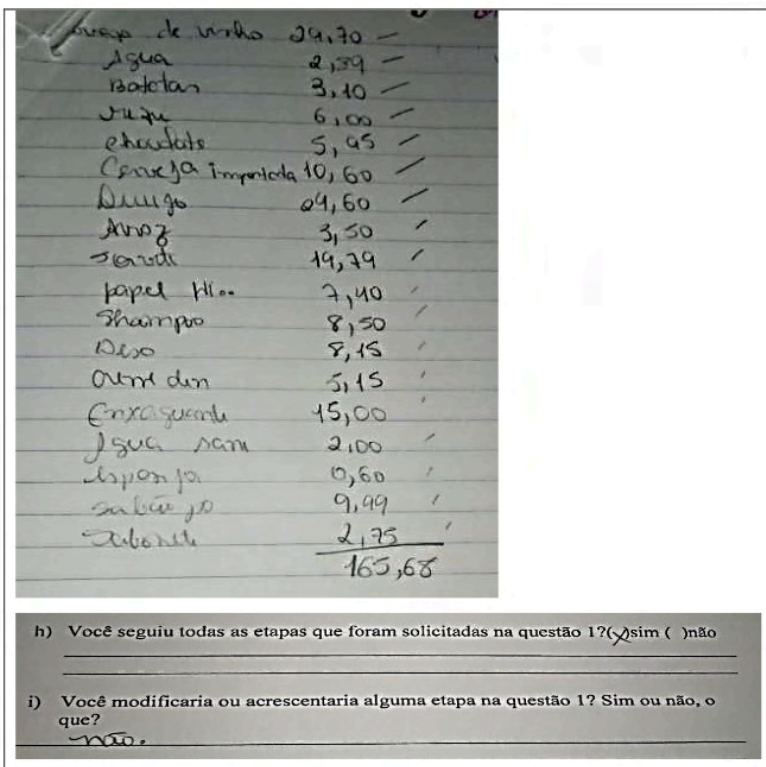 de vinho 29,70 –
Agua 2,39 –
Batatas 3,10 –
6,00 –
chocolate 5,95 –
Cerveja importada 10,60 –
24,60 –
Arroz 3,50
19,79
papel Hi.. 7,40
Shampoo 8,50
Deso 8,15
creme den 5,15
Enxaguante 15,00
Agua sani 2,00
esponja 0,60
sabão po 9,99
Sabonete 2,75
165,68
h) Você seguiu todas as etapas que foram solicitadas na questão 1?(x)sim ( )não
i) Você modificaria ou acrescentaria alguma etapa na questão 1? Sim ou não, o
que?
não.